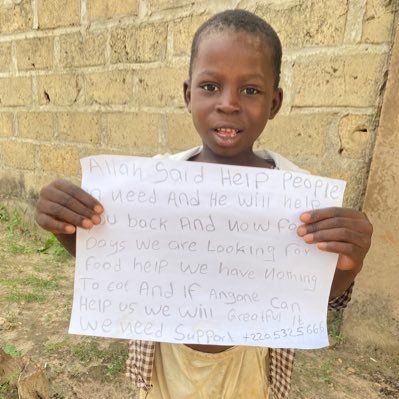 Allah Said Help People
in need And He will help
you back And now For
Days we are Looking For
Food help we have Nothing
To eat And if Anyone Can
Help us we will Greatful It
We need Support +220 5325666